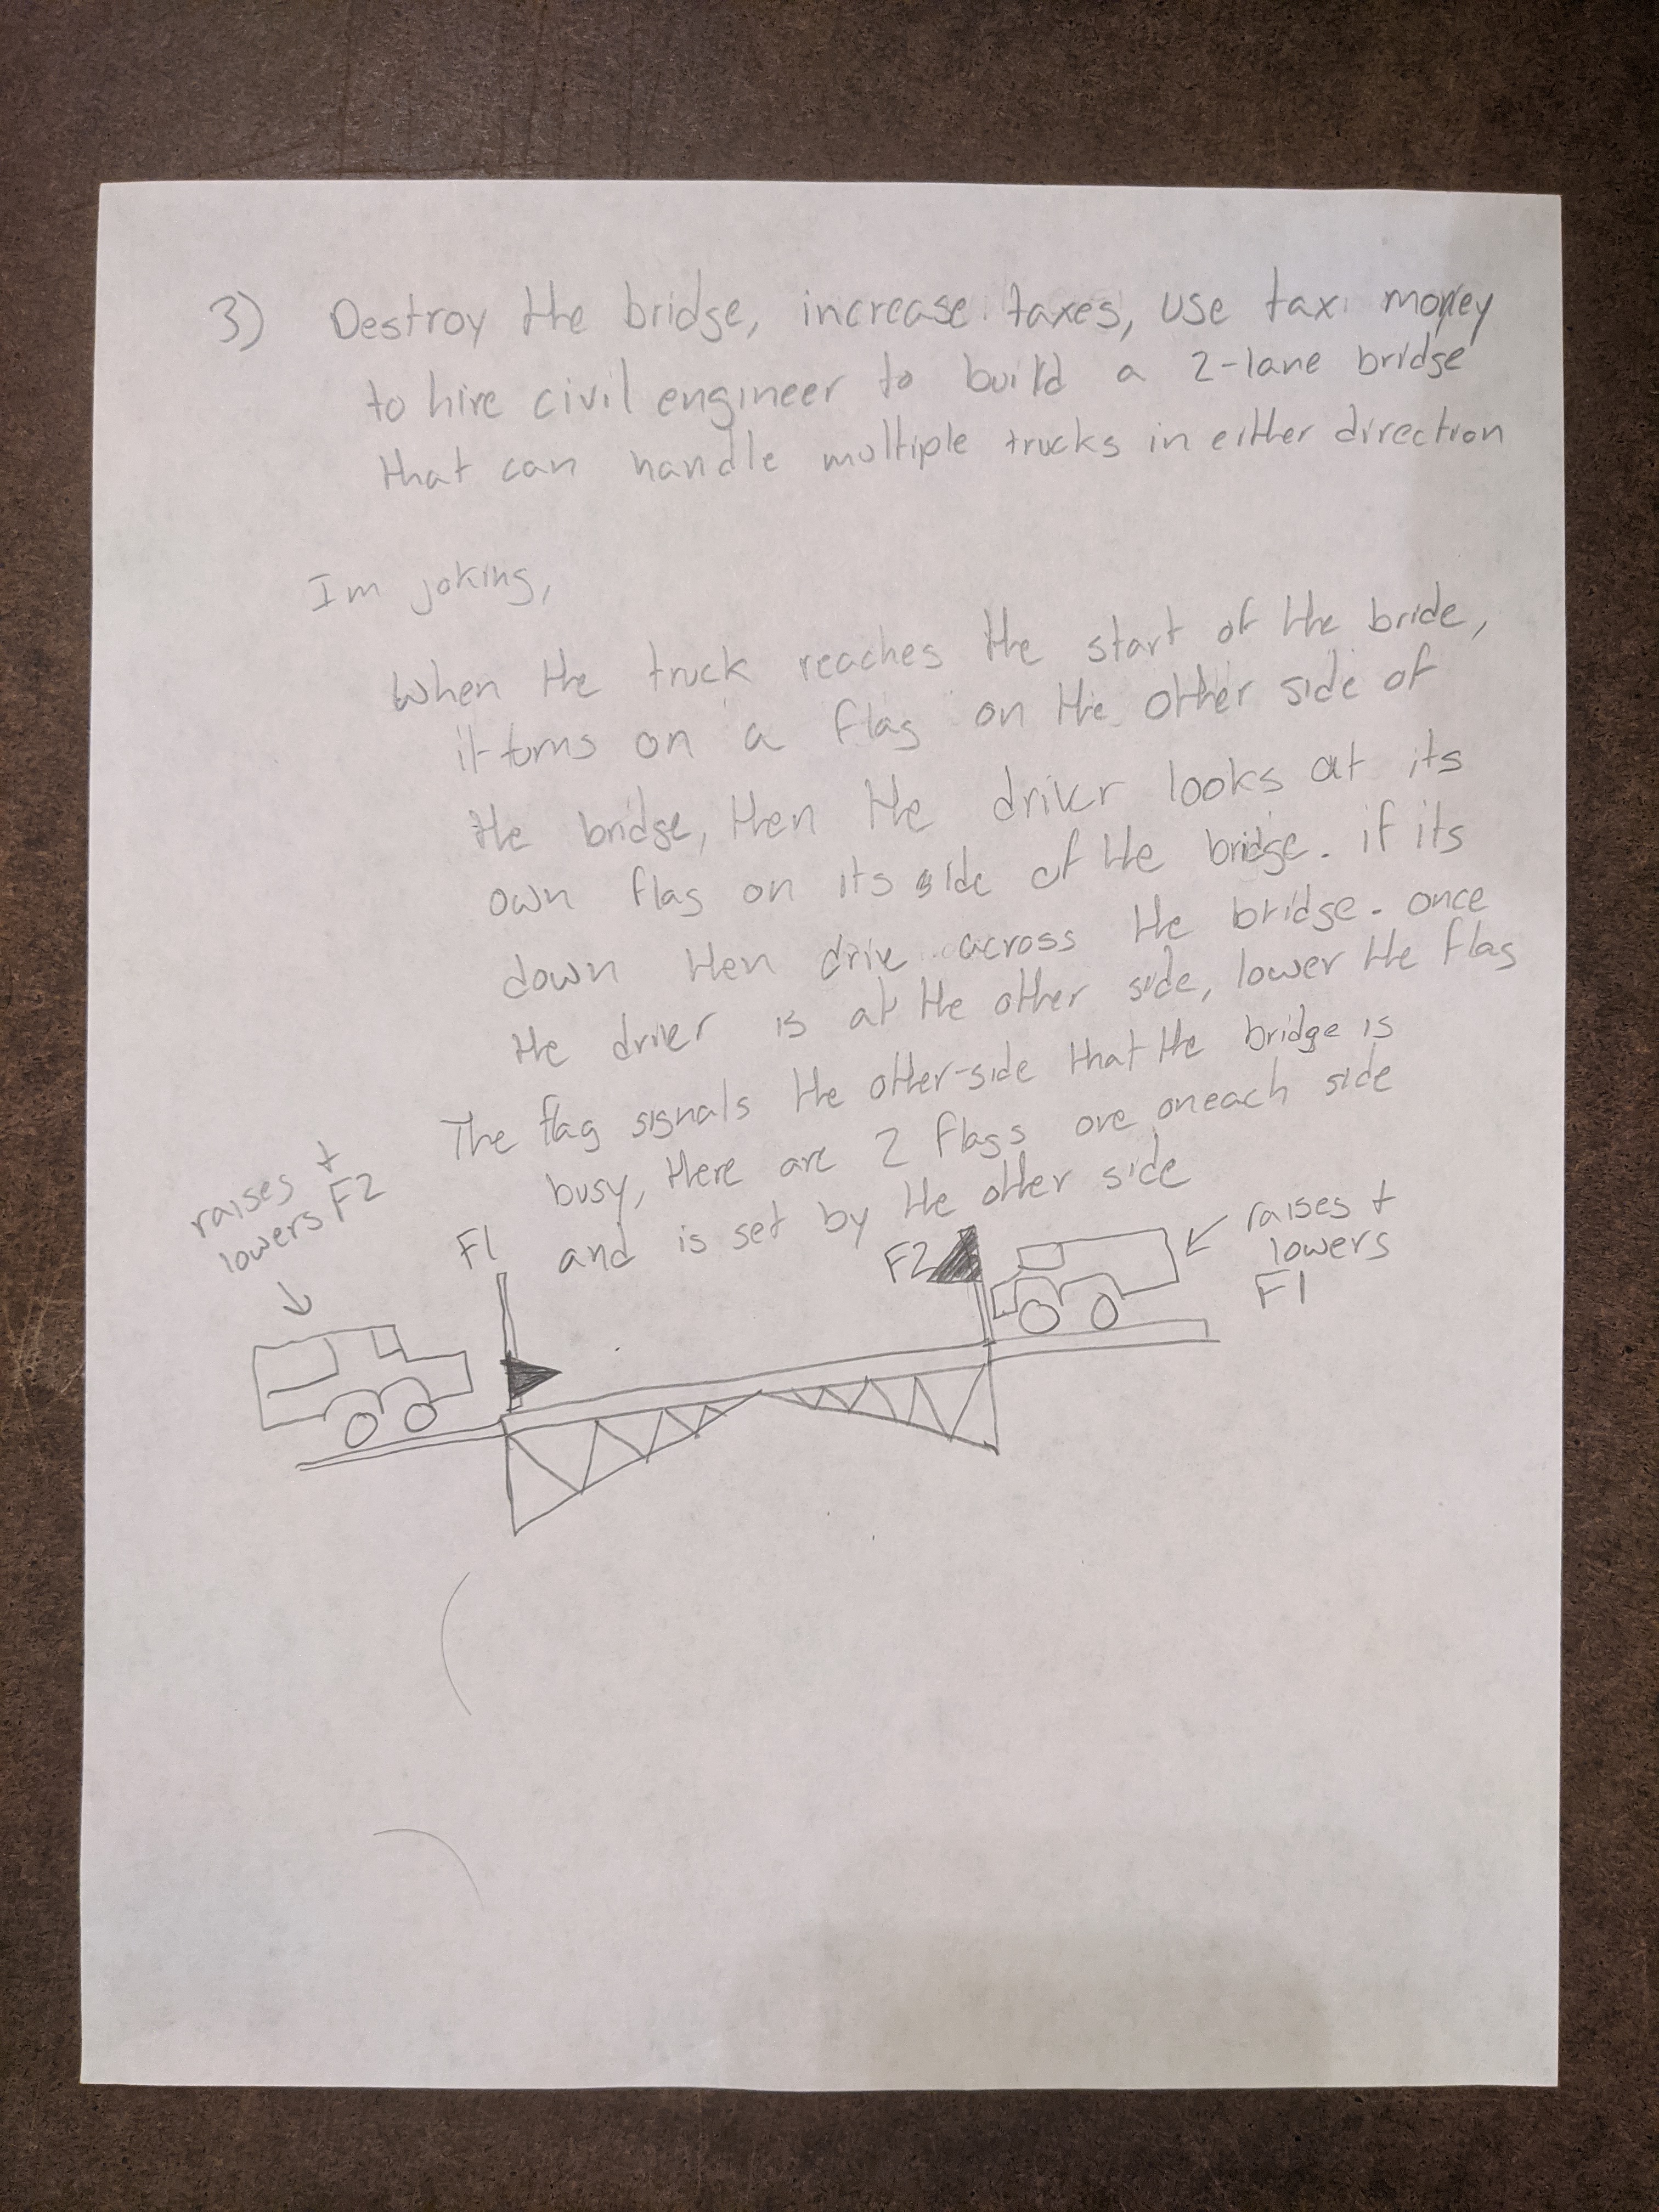 3) Destroy the bridge, increase taxes, use tax money
to hire civil engineer to build a 2-lane bridge
that can handle multiple trucks in either direction
Im joking,
When the truck reaches the start of the bride,
it turns on a flag on the other side of
the bridge, then the driver looks at its
own flag on its side of the bridge. if its
down then drive across the bridge. once
the driver is at the other side, lower the flag
The flag signals the other-side that the bridge is
busy, there are 2 flags one on each side
and is set by the other side
raises +
lowers F2
F1
F2
raises +
lowers
F1